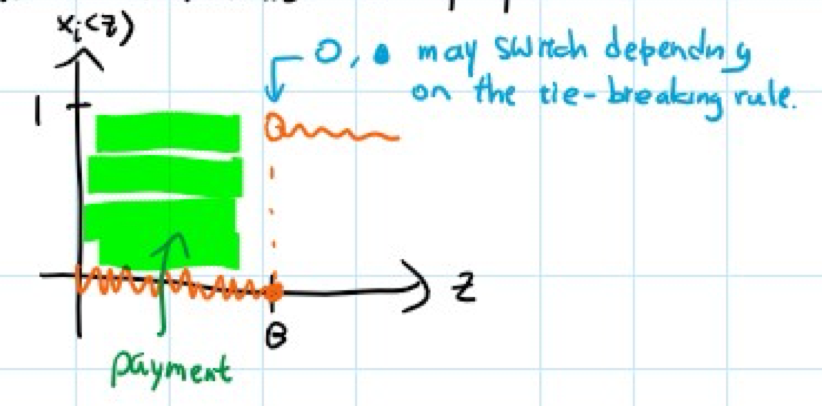 xᵢ(z)
O, ● may switch depending
on the tie-breaking rule.
1
z
B
payment